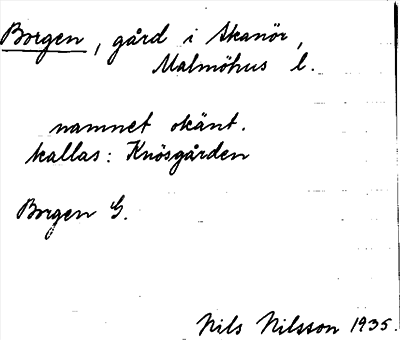 Borgen, gård i Skanör,
Malmöhus l.
namnet okänt.
kallas: Knösgården
Borgen G.
Nils Nilsson 1935.